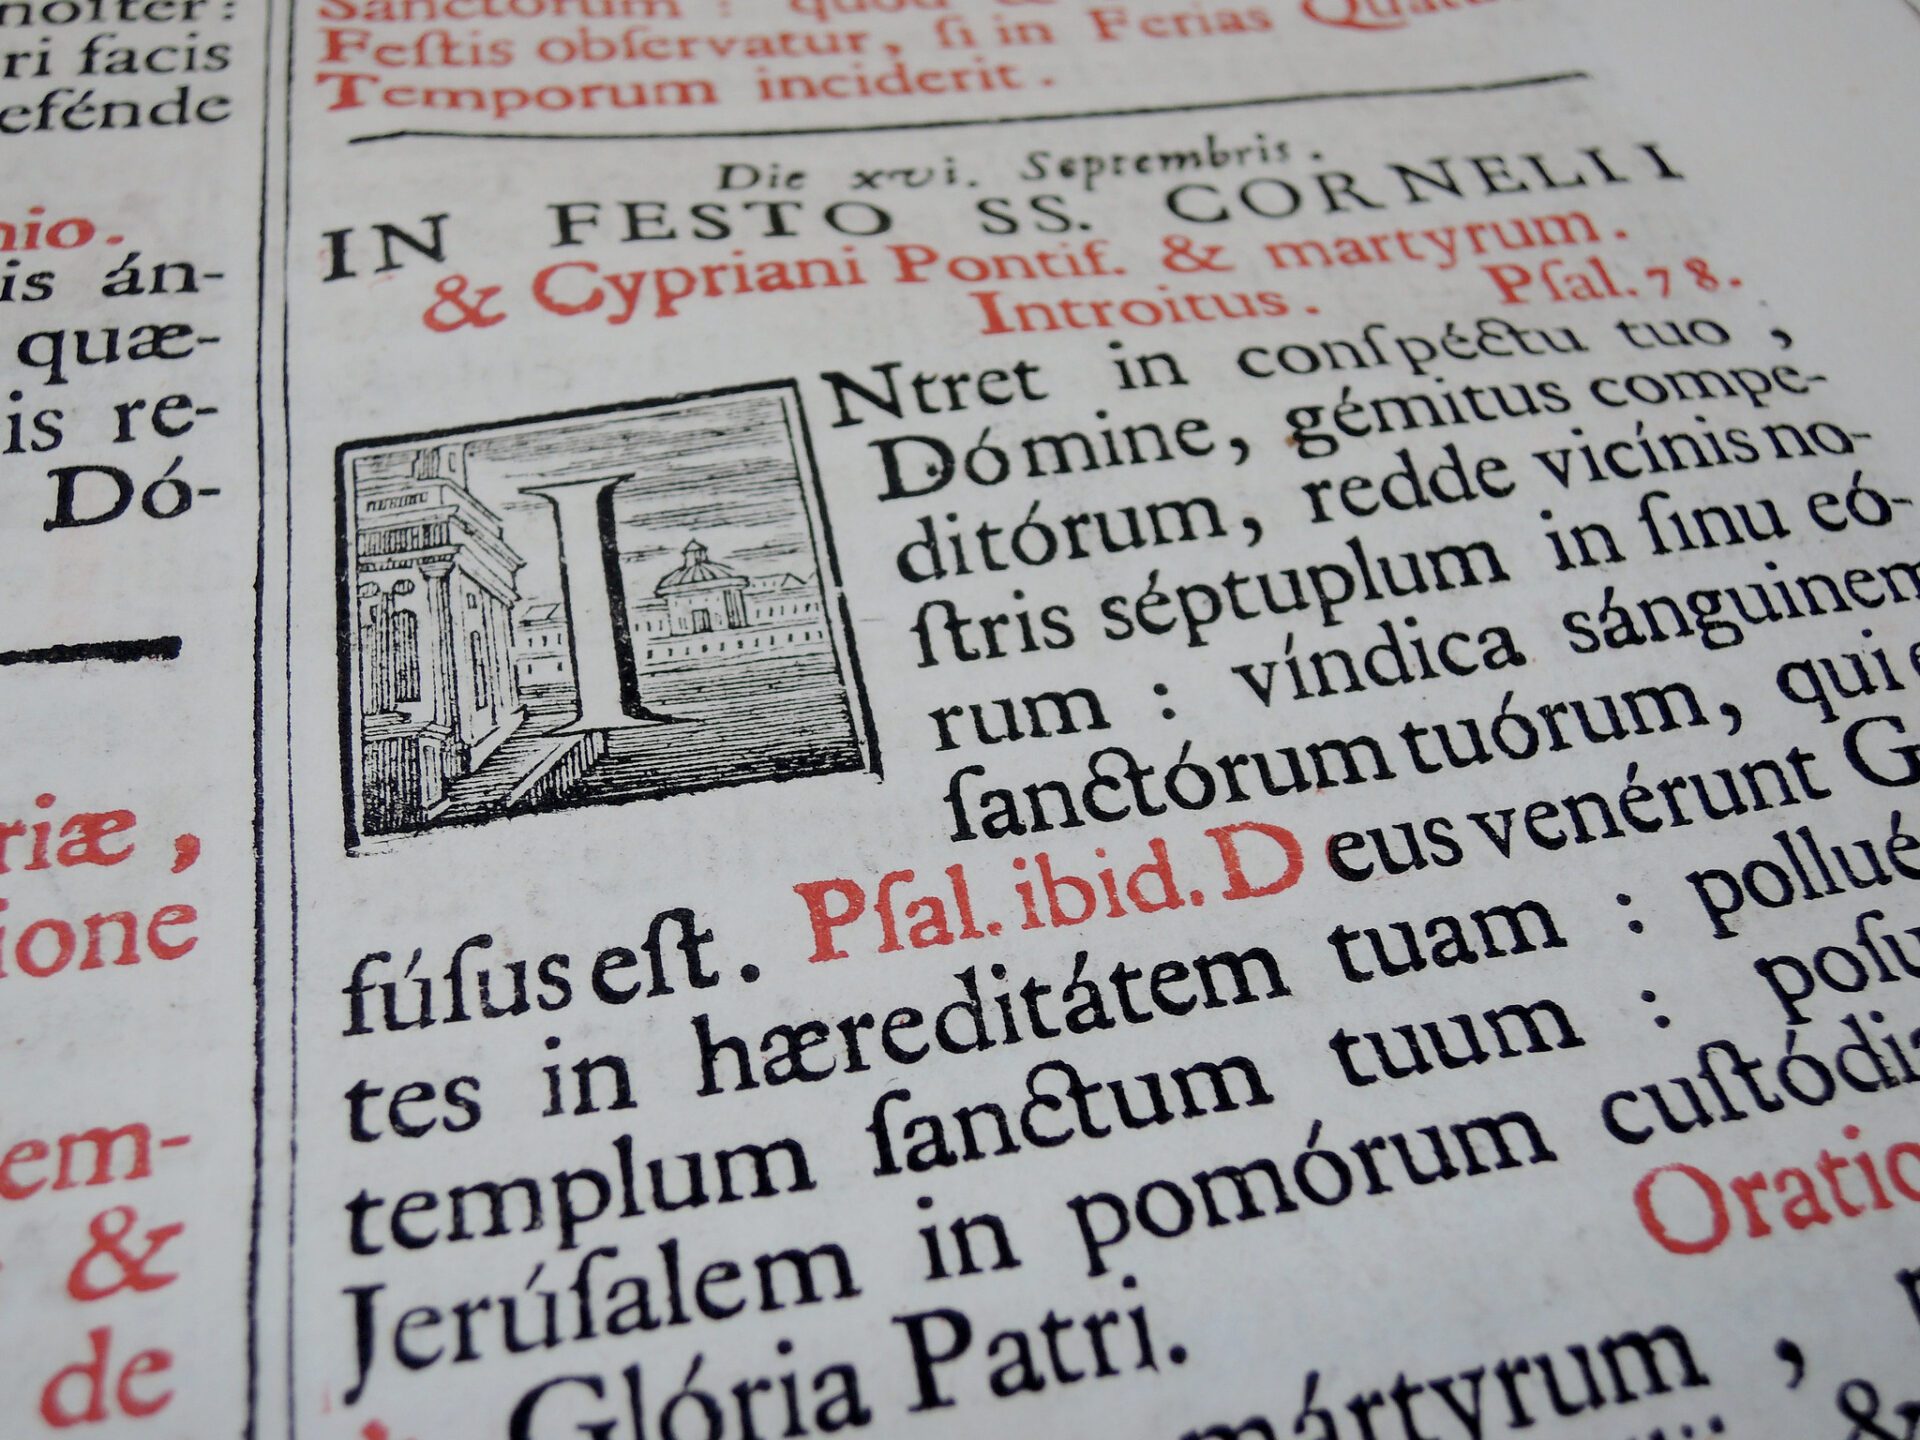 noſter:
ri facis
efénde
nio.
is án-
quæ-
is re-
Dó-
riæ,
ione
em-
&
de
Sanctorum: quod &
Feſtis obſervatur, ſi in Ferias
Temporum inciderit.
Die xvi. Septembris.
IN FESTO SS. CORNELII
& Cypriani Pontif. & martyrum.
Introitus. Pſal. 78.
INtret in conſpéctu tuo,
Dómine, gémitus compe-
ditórum, redde vicínis no-
ſtris séptuplum in ſinu eó-
rum : víndica sánguinem
ſanctórum tuórum, qui
fúſus eſt. Pſal. ibid. Deus venérunt
tes in hæreditátem tuam : pollué
templum ſanctum tuum : poſu
Jerúſalem in pomórum cuſtódi
Glória Patri.
Oratio
mártyrum,
&